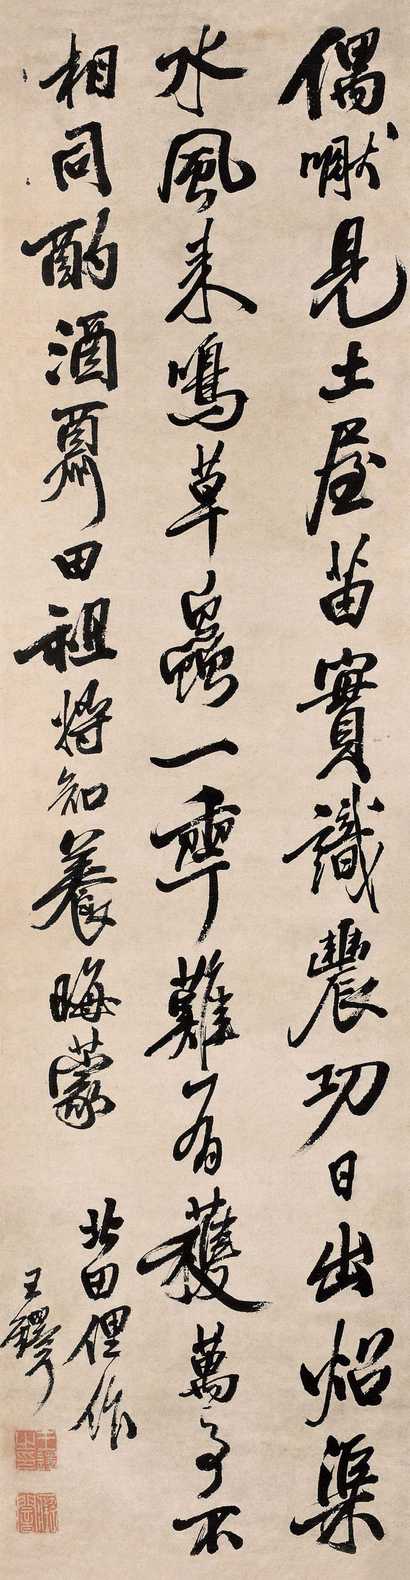 偶見土屋苗實識農功日出炤渠
水風來鳴草蟲一雩難有獲萬事不
相同酌酒田祖將知養晦蒙
北田俚作
王鐸